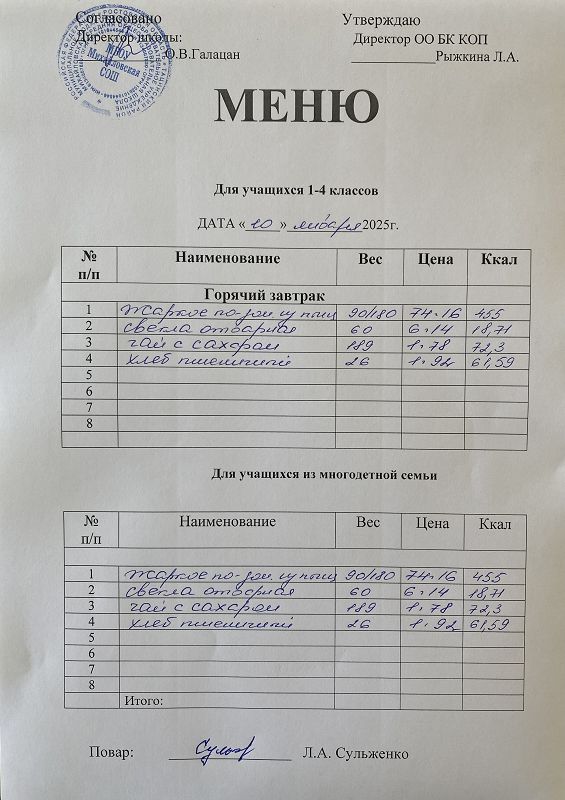 Согласовано Утверждаю
Директор школы: Директор ОО БК КОП
О.В.Галацан Рыжкина Л.А.
МБОУ
Михайловская
СОШ
МЕНЮ
Для учащихся 1-4 классов
ДАТА « 10 » января 2025г.
№ п/п Наименование Вес Цена Ккал
Горячий завтрак
1 Жаркое по-дом. из птиц 90/180 74-16 455
2 свекла отварная 60 6-14 18,71
3 чай с сахаром 189 1-78 72,3
4 хлеб пшеничный 26 1-92 61,59
5
6
7
8
Для учащихся из многодетной семьи
№ п/п Наименование Вес Цена Ккал
1 Жаркое по-дом. из птиц 90/180 74-16 455
2 свекла отварная 60 6-14 18,71
3 чай с сахаром 189 1-78 72,3
4 хлеб пшеничный 26 1-92 61,59
5
6
7
8
Итого:
Повар: Л.А. Сульженко